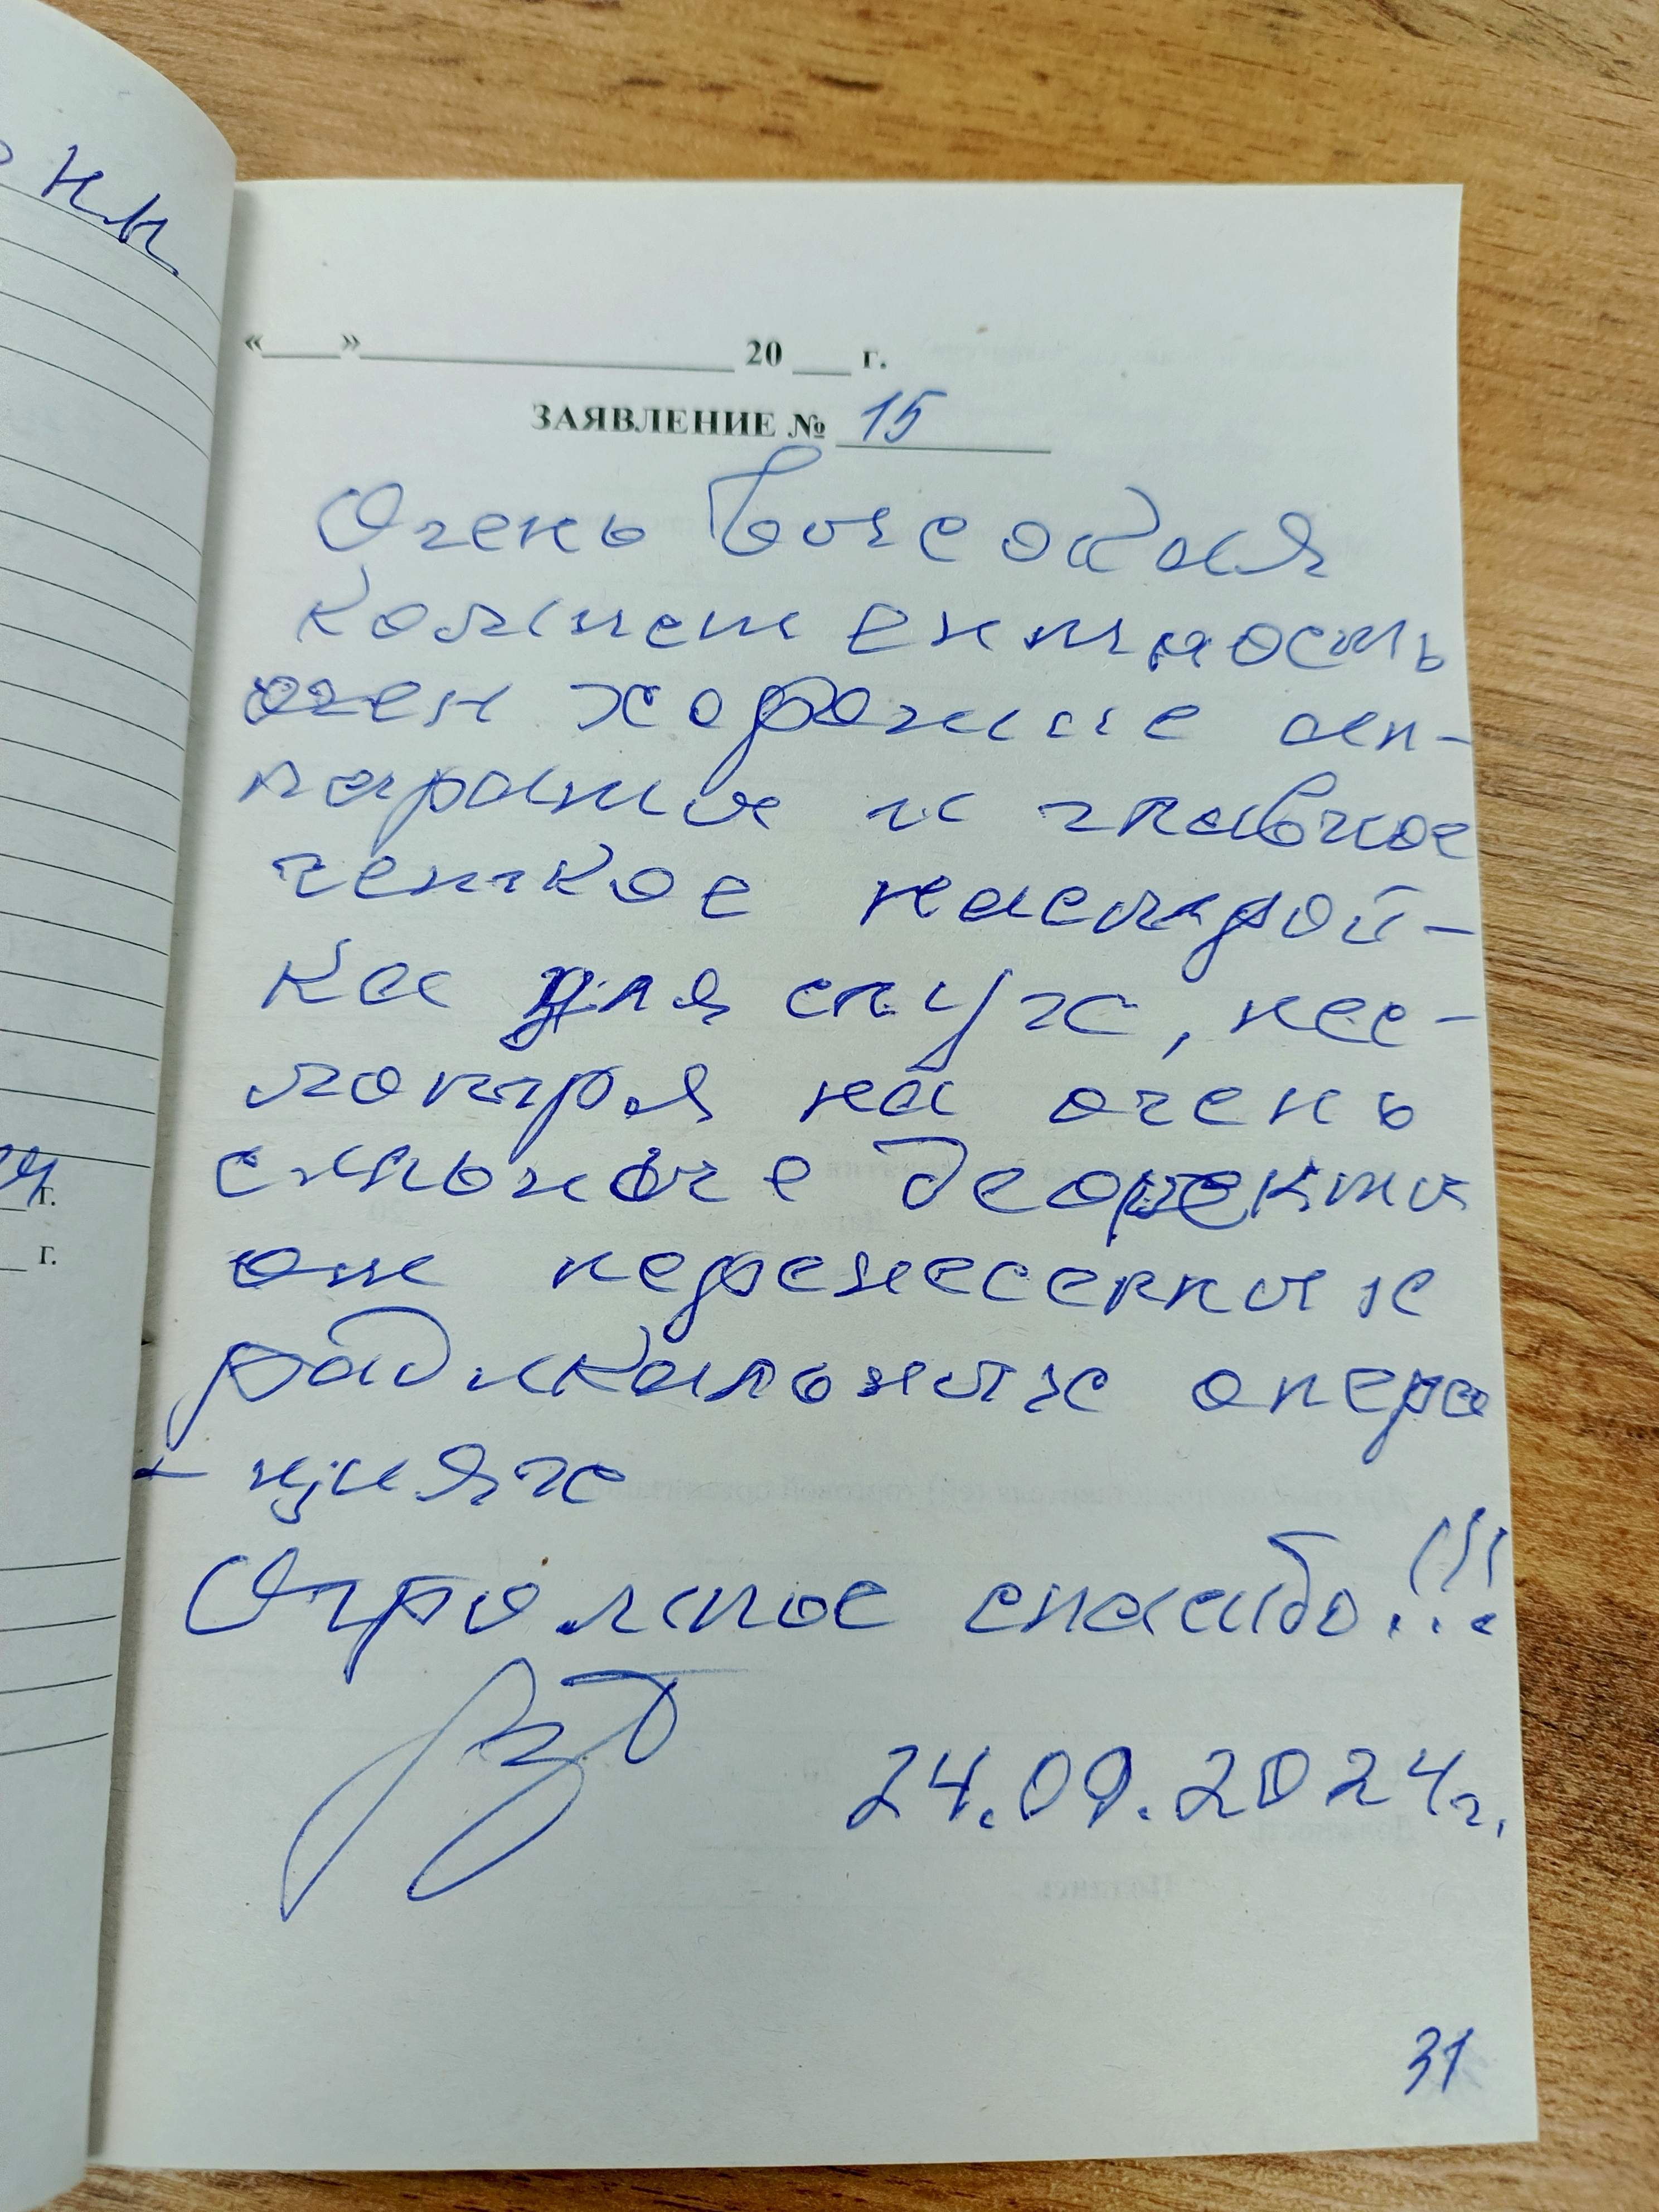 нн
«___»__________ 20 ___ г.
ЗАЯВЛЕНИЕ № 15
Очень высокая
компетентность
очен хорошие ап-
параты и главное
четкое настрой-
ка для слух, нес-
мотря на очень
сильные дефекты
от перенесенных
радикальных опера
- циях
Огромное спасибо!!!
24.09.2024г.
г.
г.
31